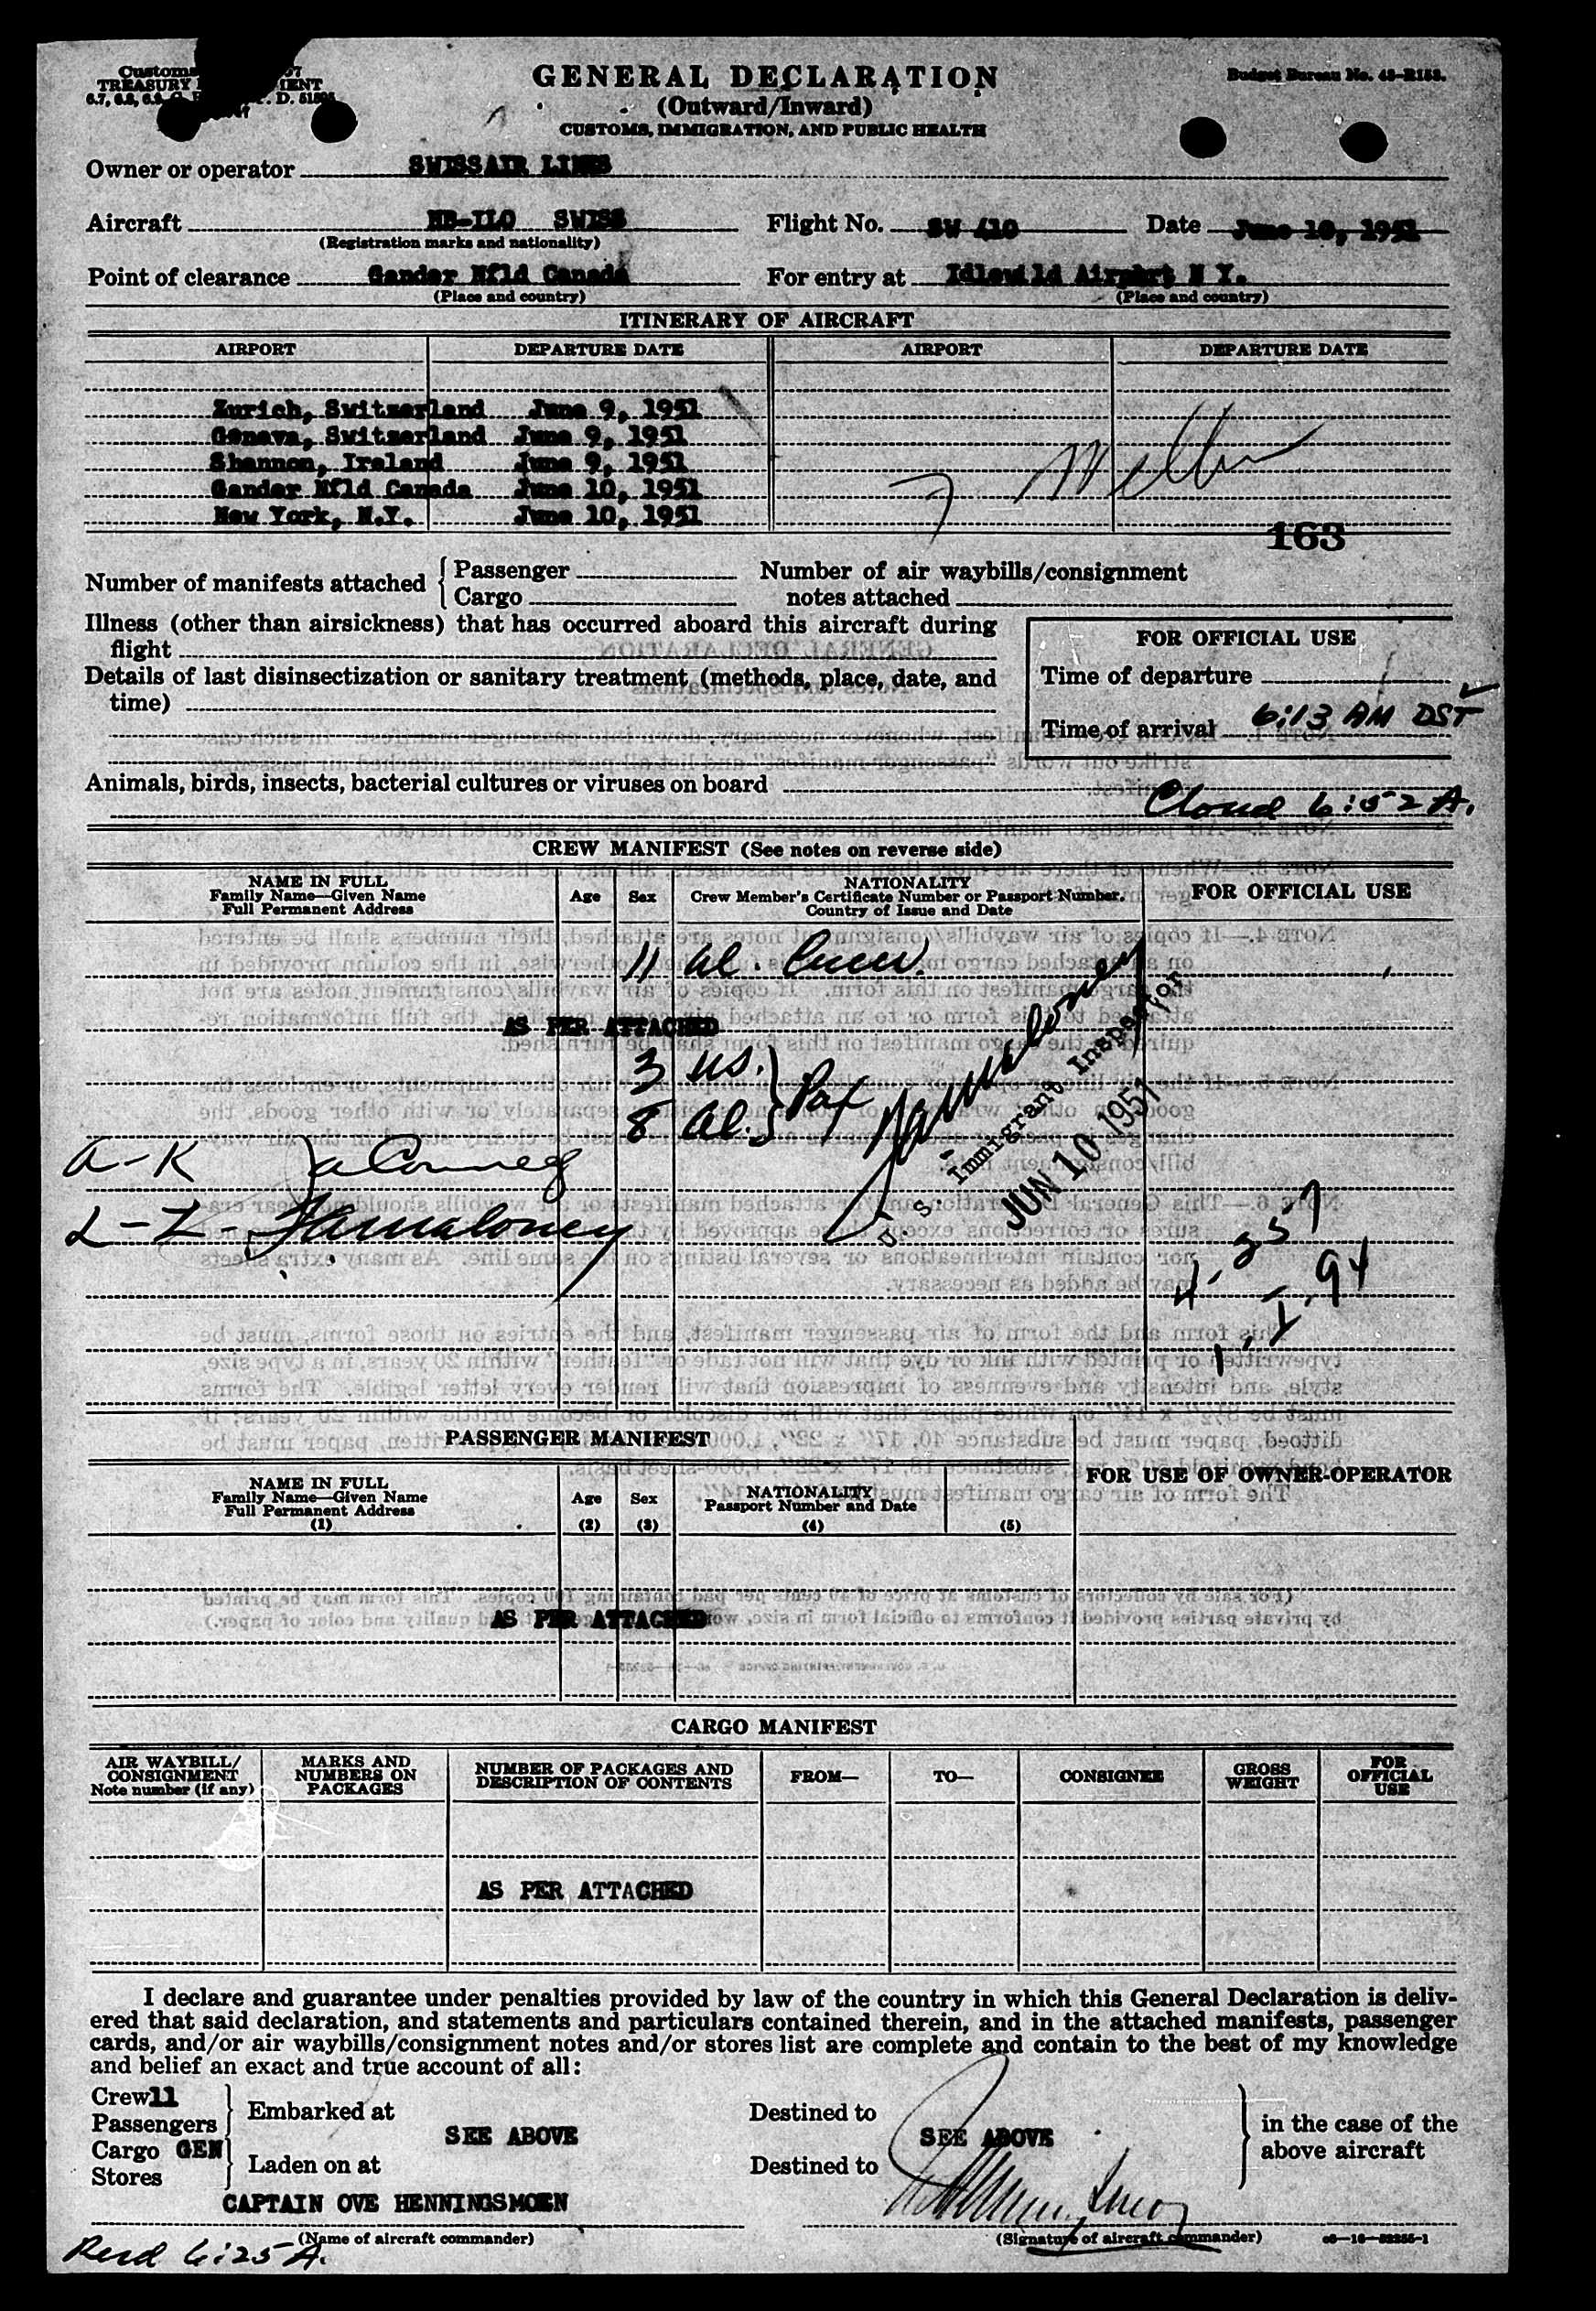 Customs
TREASURY
6.7, 6.8, 6.9
D.
GENERAL DECLARATION
(Outward/Inward)
CUSTOMS, IMMIGRATION, AND PUBLIC HEALTH
Budget Bureau No. 48-R153.
Owner or operator SWISSAIR LINES
Aircraft HB-ILO SWISS Flight No. SW 410 Date June 10, 1951
(Registration marks and nationality)
Point of clearance Gander Nfld Canada For entry at Idlewild Airport N Y.
(Place and country) (Place and country)
ITINERARY OF AIRCRAFT
AIRPORT DEPARTURE DATE AIRPORT DEPARTURE DATE
Zurich, Switzerland June 9, 1951
Geneva, Switzerland June 9, 1951
Shannon, Ireland June 9, 1951
Gander Nfld Canada June 10, 1951
New York, N.Y. June 10, 1951
163
Number of manifests attached { Passenger Number of air waybills/consignment
Cargo notes attached
Illness (other than airsickness) that has occurred aboard this aircraft during
flight
FOR OFFICIAL USE
Details of last disinsectization or sanitary treatment (methods, place, date, and
time)
Time of departure
Time of arrival 6:13 AM DST
Animals, birds, insects, bacterial cultures or viruses on board
6:52 A.
CREW MANIFEST (See notes on reverse side)
NAME IN FULL
Family Name—Given Name
Full Permanent Address
Age
Sex
NATIONALITY
Crew Member's Certificate Number or Passport Number.
Country of Issue and Date
FOR OFFICIAL USE
11 al. Crew.
AS PER ATTACHED
3 US. }
8 al. } Pax
U. S. Immigrant Inspector
JUN 10 1951
A-K
L-Z-
PASSENGER MANIFEST
NAME IN FULL
Family Name—Given Name
Full Permanent Address
(1)
Age
(2)
Sex
(3)
NATIONALITY
Passport Number and Date
(4) (5)
FOR USE OF OWNER-OPERATOR
AS PER ATTACHED
CARGO MANIFEST
AIR WAYBILL/
CONSIGNMENT
Note number (if any)
MARKS AND
NUMBERS ON
PACKAGES
NUMBER OF PACKAGES AND
DESCRIPTION OF CONTENTS
FROM—
TO—
CONSIGNEE
GROSS
WEIGHT
FOR
OFFICIAL
USE
AS PER ATTACHED
I declare and guarantee under penalties provided by law of the country in which this General Declaration is deliv-
ered that said declaration, and statements and particulars contained therein, and in the attached manifests, passenger
cards, and/or air waybills/consignment notes and/or stores list are complete and contain to the best of my knowledge
and belief an exact and true account of all:
Crew 11
Passengers
Cargo GEN
Stores
Embarked at
SEE ABOVE
Laden on at
Destined to
SEE ABOVE
Destined to
in the case of the
above aircraft
CAPTAIN OVE HENNINGSMOEN
(Name of aircraft commander) (Signature of aircraft commander)
6:25 A.